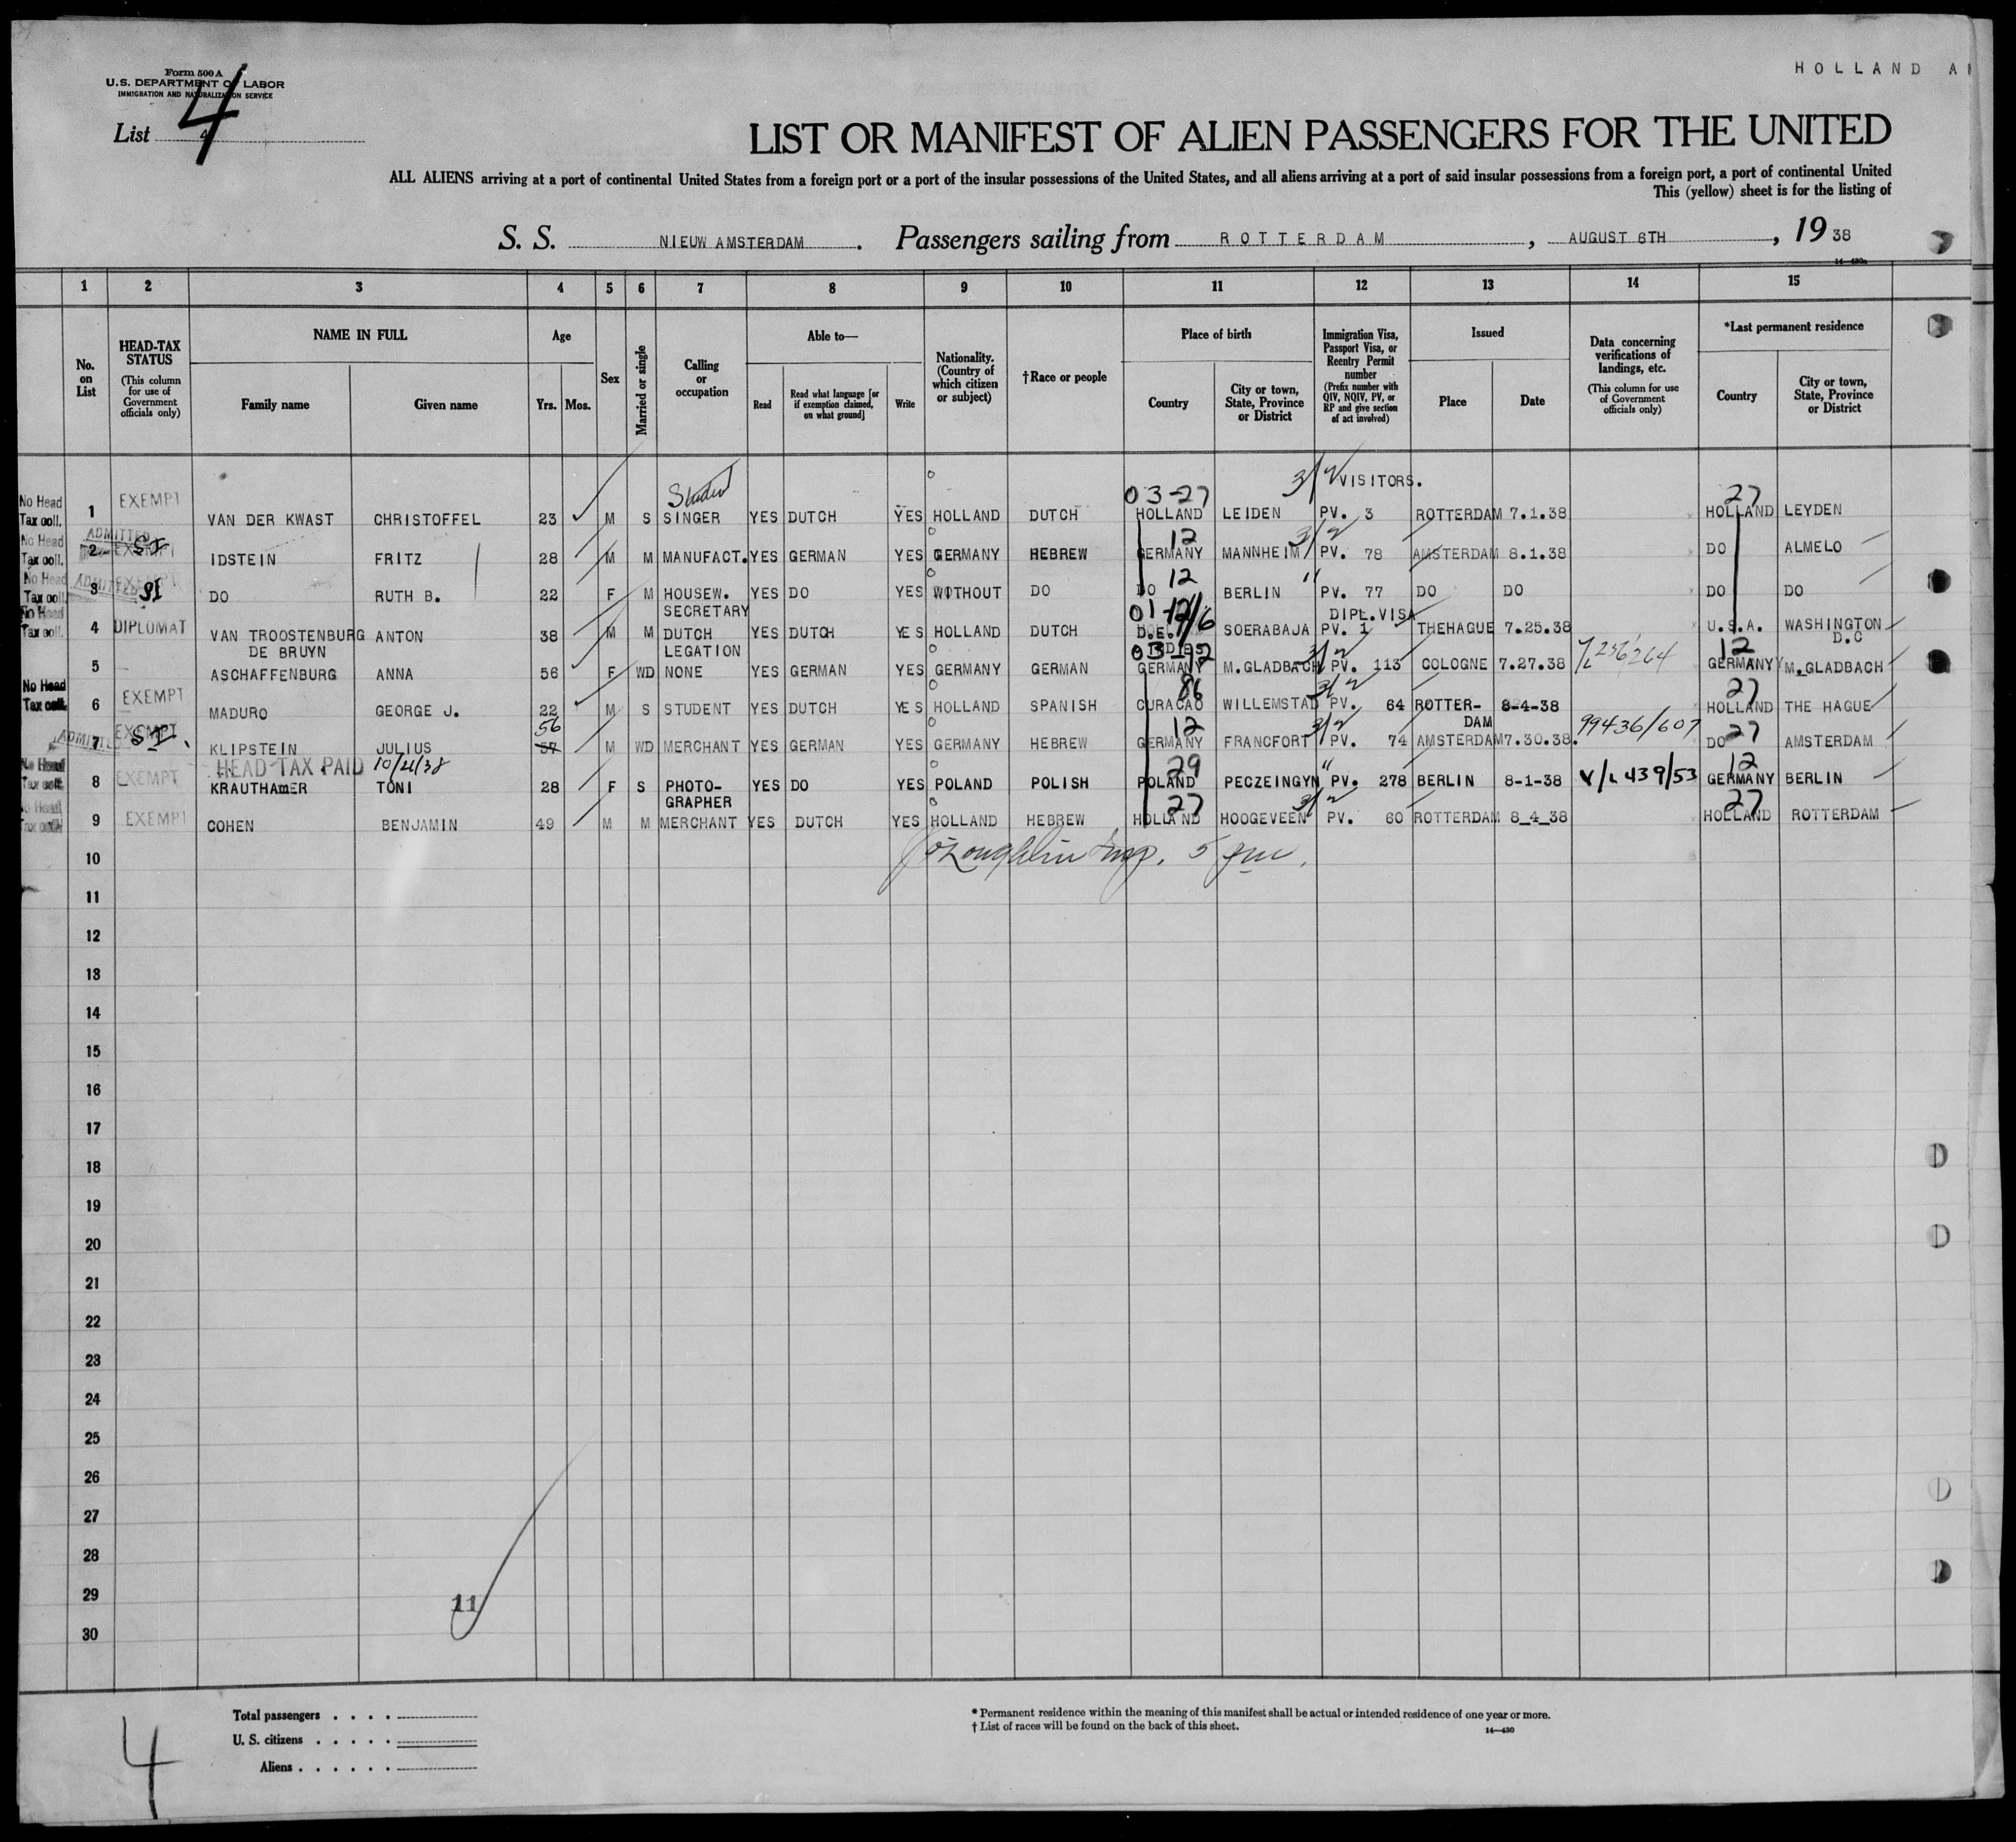 HOLLAND A
Form 500 A
U.S. DEPARTMENT OF LABOR
IMMIGRATION AND NATURALIZATION SERVICE
List 4
4
LIST OR MANIFEST OF ALIEN PASSENGERS FOR THE UNITED
ALL ALIENS arriving at a port of continental United States from a foreign port or a port of the insular possessions of the United States, and all aliens arriving at a port of said insular possessions from a foreign port, a port of continental United
This (yellow) sheet is for the listing of
S. S. NIEUW AMSTERDAM . Passengers sailing from ROTTERDAM , AUGUST 6TH , 19 38
14—430a
1 2 3 4 5 6 7 8 9 10 11 12 13 14 15
No. on List
HEAD-TAX STATUS
(This column for use of Government officials only)
NAME IN FULL
Family name Given name
Age
Yrs. Mos.
Sex
Married or single
Calling or occupation
Able to—
Read
Read what language [or if exemption claimed, on what ground]
Write
Nationality. (Country of which citizen or subject)
†Race or people
Place of birth
Country
City or town, State, Province or District
Immigration Visa, Passport Visa, or Reentry Permit number
(Prefix number with QIV, NQIV, PV, or RP and give section of act involved)
Issued
Place Date
Data concerning verifications of landings, etc.
(This column for use of Government officials only)
*Last permanent residence
Country
City or town, State, Province or District
3/2 VISITORS.
Student 03-27 27
No Head Tax coll. 1 EXEMPT VAN DER KWAST CHRISTOFFEL 23 M S SINGER YES DUTCH YES HOLLAND DUTCH HOLLAND LEIDEN PV. 3 ROTTERDAM 7.1.38 HOLLAND LEYDEN
ADMITTED 12 3/2
No Head Tax coll. 2 EXEMPT SI IDSTEIN FRITZ 28 M M MANUFACT. YES GERMAN YES GERMANY HEBREW GERMANY MANNHEIM PV. 78 AMSTERDAM 8.1.38 DO ALMELO
ADMITTED 12 "
No Head Tax coll. 3 EXEMPT SI DO RUTH B. 22 F M HOUSEW. YES DO YES WITHOUT DO DO BERLIN PV. 77 DO DO DO DO
SECRETARY DIPL.VISA
No Head Tax coll. 4 DIPLOMAT VAN TROOSTENBURG ANTON 38 M M DUTCH YES DUTCH YES HOLLAND DUTCH D.E. SOERABAJA PV. 1 THEHAGUE 7.25.38 U.S.A. WASHINGTON
DE BRUYN LEGATION D.C
03-12 3/2 12
5 ASCHAFFENBURG ANNA 56 F WD NONE YES GERMAN YES GERMANY GERMAN GERMANY M.GLADBACH PV. 113 COLOGNE 7.27.38 GERMANY M.GLADBACH
86 3/2 27
No Head Tax coll. 6 EXEMPT MADURO GEORGE J. 22 M S STUDENT YES DUTCH YES HOLLAND SPANISH CURACAO WILLEMSTAD PV. 64 ROTTER- 8-4-38 HOLLAND THE HAGUE
DAM
56 12 3/2 99436/607 27
ADMITTED 7 EXEMPT SI KLIPSTEIN JULIUS 57 M WD MERCHANT YES GERMAN YES GERMANY HEBREW GERMANY FRANCFORT PV. 74 AMSTERDAM 7.30.38. DO AMSTERDAM
HEAD TAX PAID 10/21/38
29 " 12
No Head Tax coll. 8 EXEMPT KRAUTHAMER TONI 28 F S PHOTO- YES DO YES POLAND POLISH POLAND PECZEINGYN PV. 278 BERLIN 8-1-38 V/L 439/53 GERMANY BERLIN
GRAPHER
27 3/2 27
No Head Tax coll. 9 EXEMPT COHEN BENJAMIN 49 M M MERCHANT YES DUTCH YES HOLLAND HEBREW HOLLAND HOOGEVEEN PV. 60 ROTTERDAM 8_4_38 HOLLAND ROTTERDAM
10
11
12
13
14
15
16
17
18
19
20
21
22
23
24
25
26
27
28
29
11
30
4
Total passengers . . . .
U. S. citizens . . . . .
Aliens . . . . . .
* Permanent residence within the meaning of this manifest shall be actual or intended residence of one year or more.
† List of races will be found on the back of this sheet.
14—430